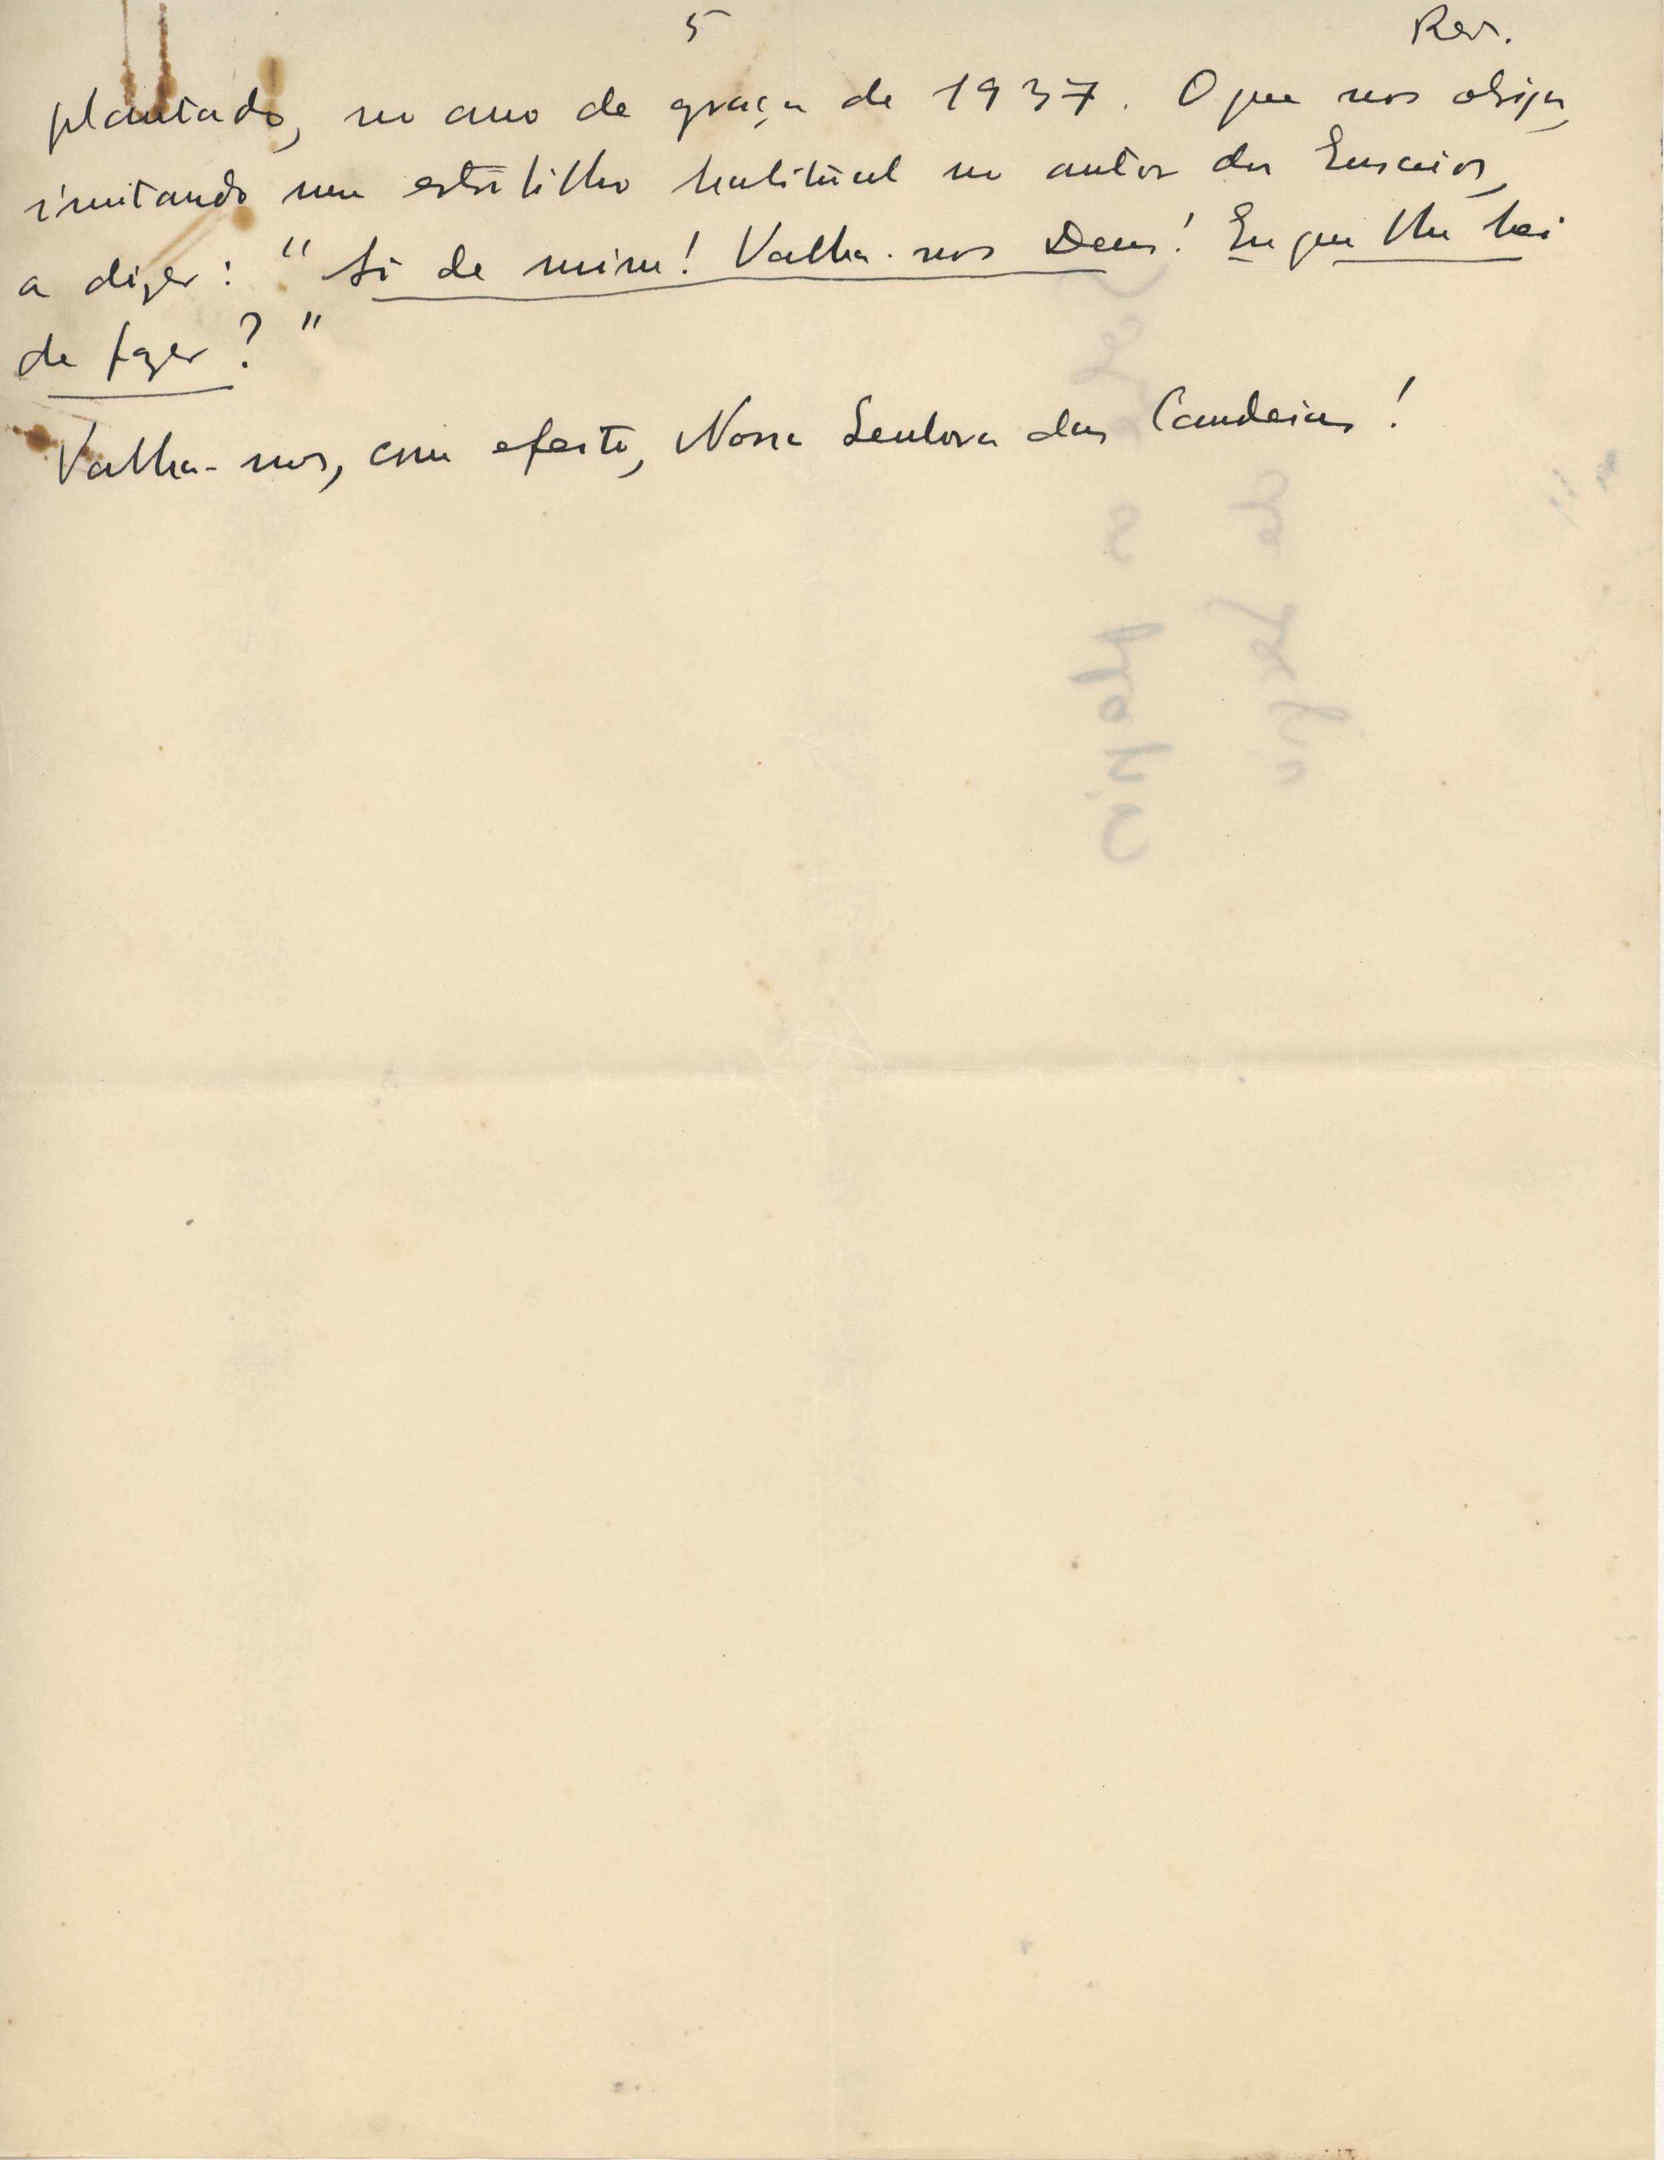 5 Rev.
plantado, no ano de graça de 1937. O que nos obriga,
imitando um estribilho habitual no autor dos Ensaios,
a dizer: " Ai de mim! Valha-nos Deus! Eu que lhe hei
de fazer? "
Valha-nos, com efeito, Nossa Senhora das Candeias!